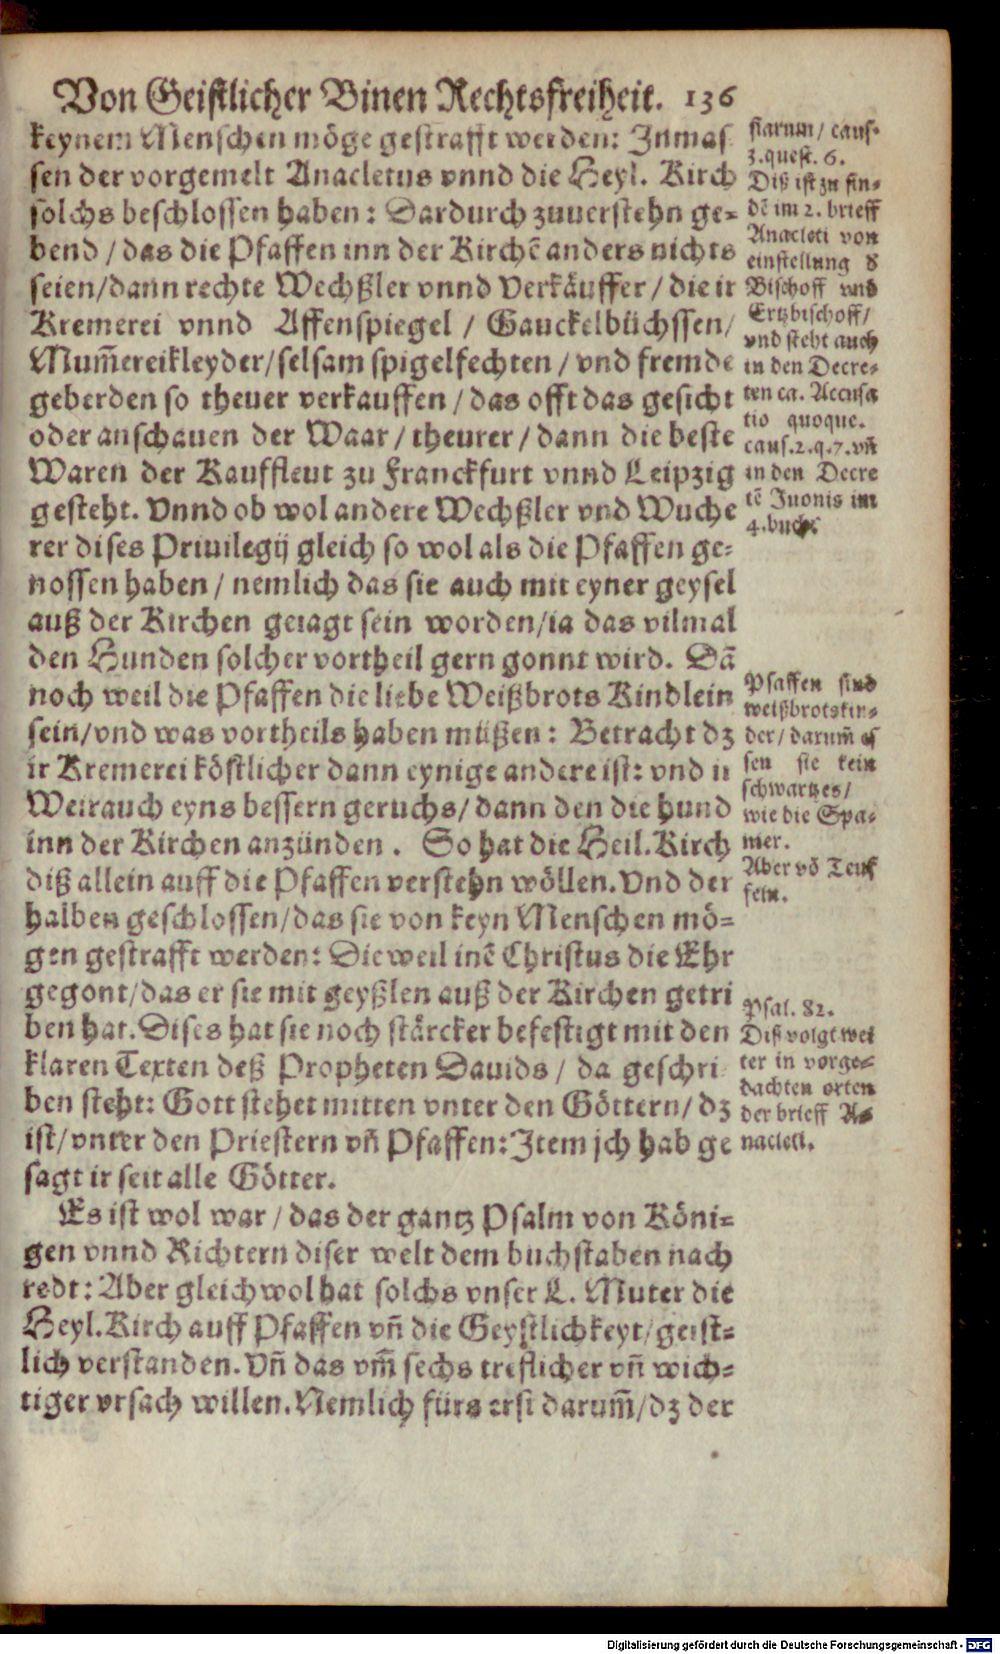 Von Geistlicher Binen Rechtsfreiheit. 136
keynem Menschen möge gestrafft werden: Inmas
sen der vorgemelt Anacletus vnnd die Heyl. Kirch
solchs beschlossen haben: Dardurch zuuerstehn ge-
bend / das die Pfaffen inn der Kirchẽ anders nichts
seien/dann rechte Wechßler vnnd Verkäuffer / die ir
Kremerei vnnd Affenspiegel / Gauckelbüchssen/
Mum̃ereikleyder/selsam spigelfechten / vnd fremde
geberden so theuer verkauffen / das offt das gesicht
oder anschauen der Waar / theurer / dann die beste
Waren der Kauffleut zu Franckfurt vnnd Leipzig
gesteht. Vnnd ob wol andere Wechßler vnd Wuche
rer dises Priuilegij gleich so wol als die Pfaffen ge-
nossen haben / nemlich das sie auch mit eyner geysel
auß der Kirchen geiagt sein worden/ia das vilmal
den Hunden solcher vortheil gern gonnt wird. Dã
noch weil die Pfaffen die liebe Weißbrots Kindlein
sein/vnd was vortheils haben müßen: Betracht dz
ir Kremerei köstlicher dann eynige andere ist: vnd ir
Weirauch eyns bessern geruchs/dann den die hund
inn der Kirchen anzünden. So hat die Heil. Kirch
diß allein auff die Pfaffen verstehn wöllen. Vnd der
halben geschlossen/das sie von keyn Menschen mö-
gen gestrafft werden: Dieweil inẽ Christus die Ehr
gegont/das er sie mit geyßlen auß der Kirchen getri
ben hat. Dises hat sie noch stärcker befestigt mit den
klaren Texten deß Propheten Dauids / da geschri
ben steht: Gott stehet mitten vnter den Göttern/ dz
ist/vnter den Priestern vñ Pfaffen: Item jch hab ge
sagt ir seit alle Götter.
Es ist wol war / das der gantz Psalm von Köni-
gen vnnd Richtern diser welt dem buchstaben nach
redt: Aber gleichwol hat solchs vnser L. Muter die
Heyl. Kirch auff Pfaffen vñ die Geystlichkeyt/geist-
lich verstanden. Vñ das vm̃ sechs treflicher vñ wich-
tiger vrsach willen. Nemlich fürs erst darum̃/dz der
siarum / caus.
3. quest. 6.
Diß ist zu fin-
dẽ im 2. brieff
Anacleti von
einstellung d
Bischoff vnd
Ertzbischoff/
vnd steht auch
in den Decre-
ten ca. Accusa
tio quoque.
caus. 2. q. 7. vñ
in den Decre
tẽ Iuonis im
4. buch.
Pfaffen sind
weißbrotskin-
der / darum̃ es
sen sie kein
schwartzes/
wie die Spa-
nier.
Aber võ Teuf
feln.
Psal. 82.
Diß volgt wei
ter in vorge-
dachten orten
der brieff A-
nacleti.
Digitalisierung gefördert durch die Deutsche Forschungsgemeinschaft - DFG